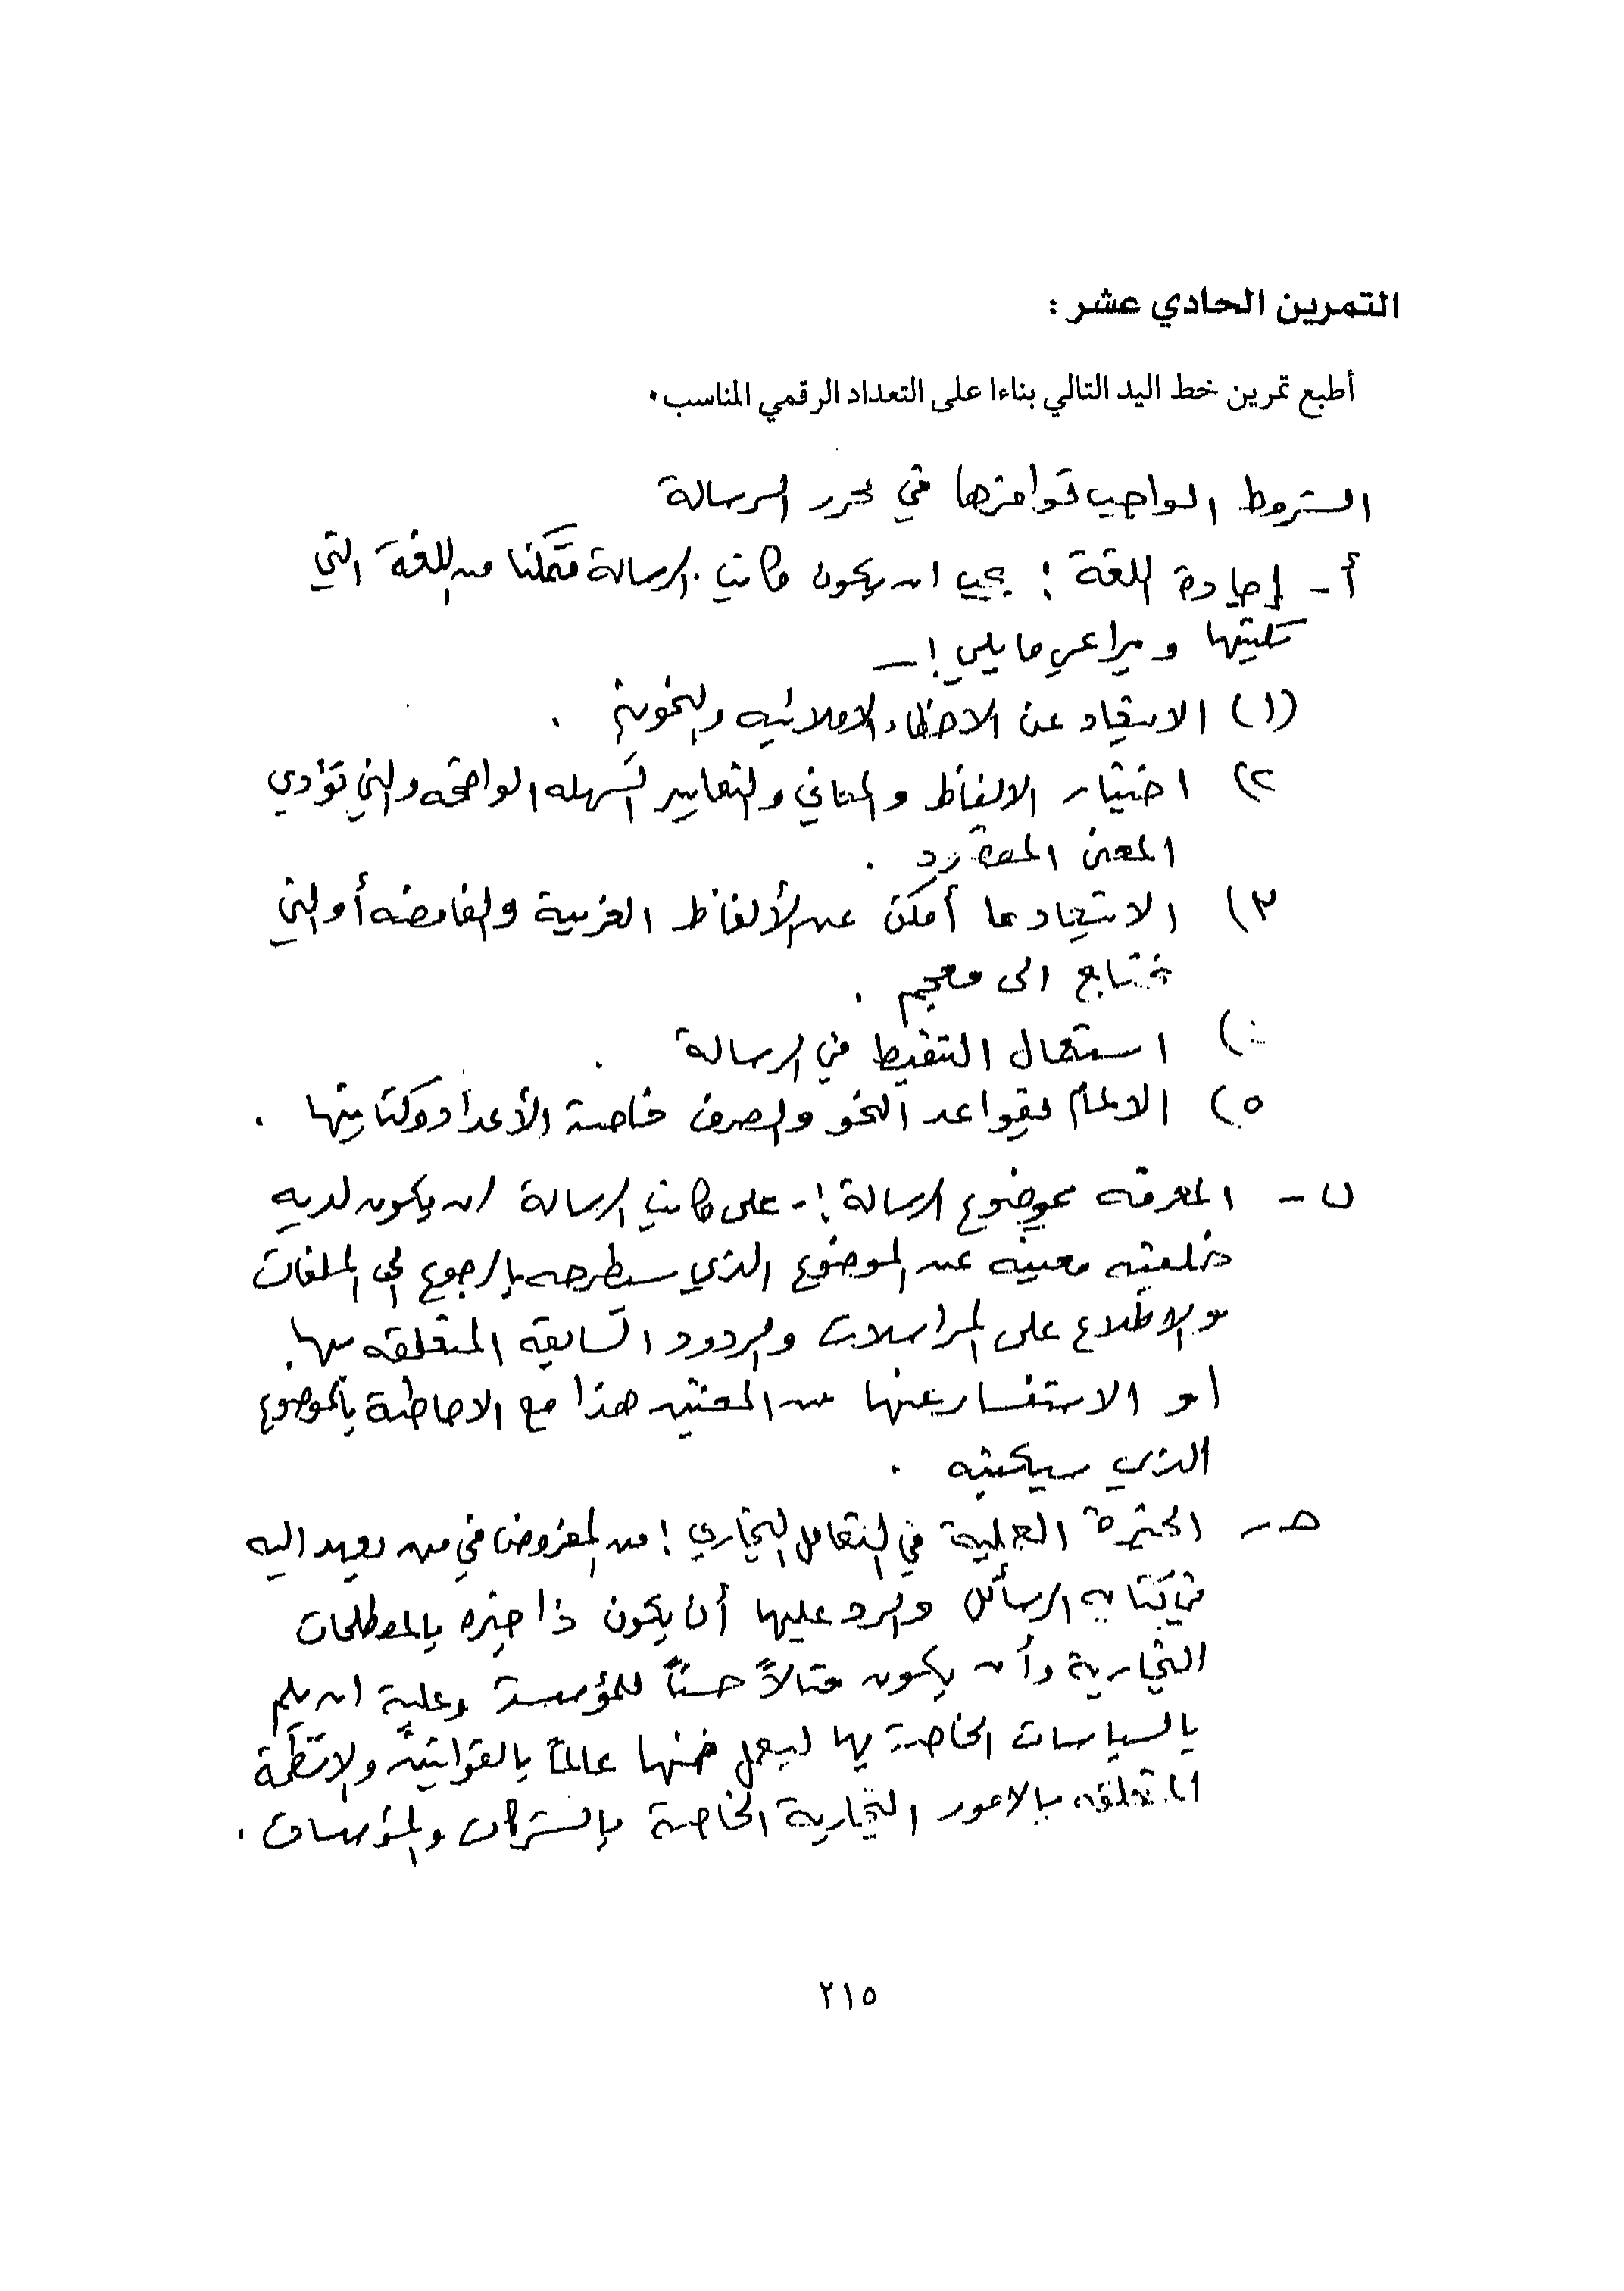 التمرين الحادي عشر :
أطبع تمرين خط اليد التالي بناءا على التعداد الرقمي المناسب .
الشروط الواجب توافرها في محرر الرسالة
أ - إجادة اللغة : يجب ان يكون كاتب الرسالة متمكنا من اللغة التي
يكتبها ويراعي ما يلي :-
(١) الابتعاد عن الاخطاء الاملائيه والنحوية .
٢) اختيار الالفاظ والمعاني والتعابير السهله الواضحه والتي تؤدي
المعنى المقصود .
٣) الابتعاد ما أمكن عن الألفاظ الغريبة والغامضه أو التي
تحتاج الى معجم .
) استعمال التنقيط في الرسالة .
٥) الالمام بقواعد النحو والصرف خاصة الأعداد وكتابتها .
ب - المعرفه بموضوع الرسالة :- على كاتب الرسالة ان يكون لديه
خلفيه معينه عن الموضوع الذي سيطرحه بالرجوع الى الملفات
والاطلاع على المراسلات والردود السابقه المتعلقه بها .
او الاستفسار عنها من المعنيين هذا مع الاحاطة بالموضوع
الذي سيكتبه .
حـ - الخبرة العملية في التعامل التجاري : من المفروض في من يعهد اليه
في كتابه الرسائل والرد عليها أن يكون ذا خبره بالمصطلحات
التجارية وأن يكون مثالاً حسناً للمؤسسة وعلية ان يلم
بالسياسات الخاصة بها ليعمل ضمنها عالماً بالقوانين والانظمة
المتعلقه بالامور التجارية الخاصة بالشركات والمؤسسات .
٢١٥